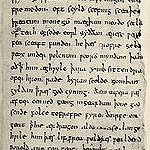 medon. oft scyld scefing sceaþe
þreatum monegū mægþum meodo setla
of teah egsode eorl syððan ærest wearð
fea sceaft funden he þæs frofre geba
weox under wolcnum weorð myndum þah
oð þ him æghwylc þara ymb sittendra
ofer hron rade hyran scolde gomban
gyldan þ wæs god cyning. ðæm eafera wæs
æfter cenned geong in geardum þone god
sende folce tofrofre fyren ðearfe on
geat þ hie ær drugon aldor ase. lange
hwile him þæs lif frea wuldres wealdend